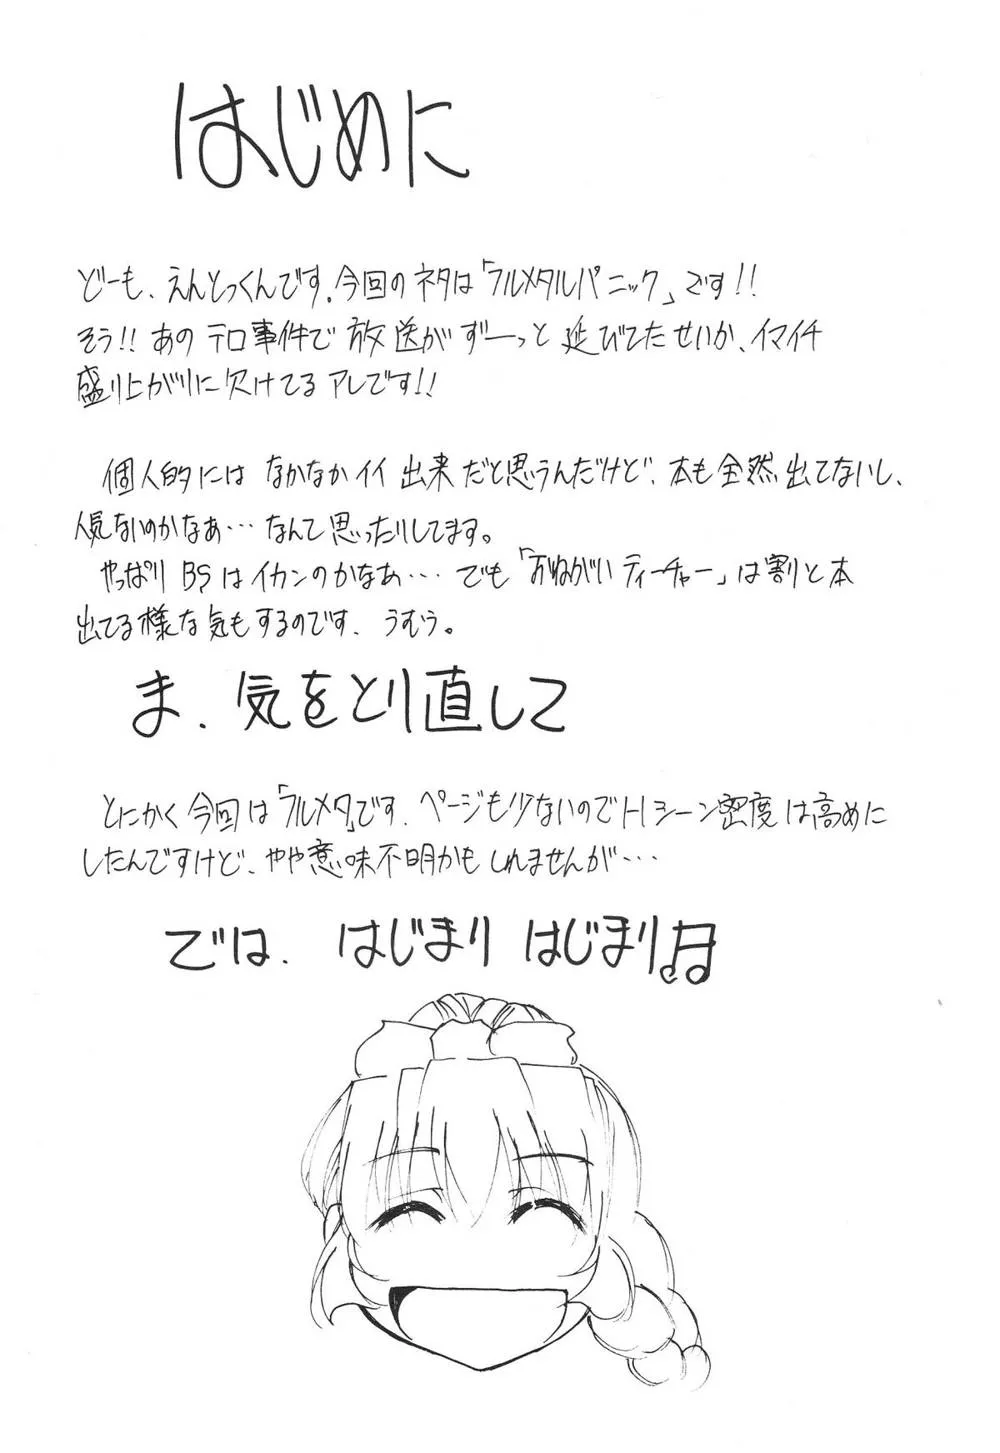 はじめに
どーも、えんとっくんです。今回のネタは「フルメタルパニック」です!!
そう!! あのテロ事件で放送がずーっと延びてたせいか、イマイチ
盛り上がりに欠けてるアレです!!
個人的にはなかなかイイ出来だと思うんだけど、本も全然出てないし、
人気ないのかなぁ…なんて思ったりしてます。
やっぱりBSはイカンのかなあ…でも「おねがいティーチャー」は割と本
出てる様な気もするのです、うむぅ。
ま、気をとり直して
とにかく今回は「フルメタ」です、ページも少ないのでHシーン密度は高めに
したんですけど、やや意味不明かもしれませんが…
では、はじまりはじまり♫